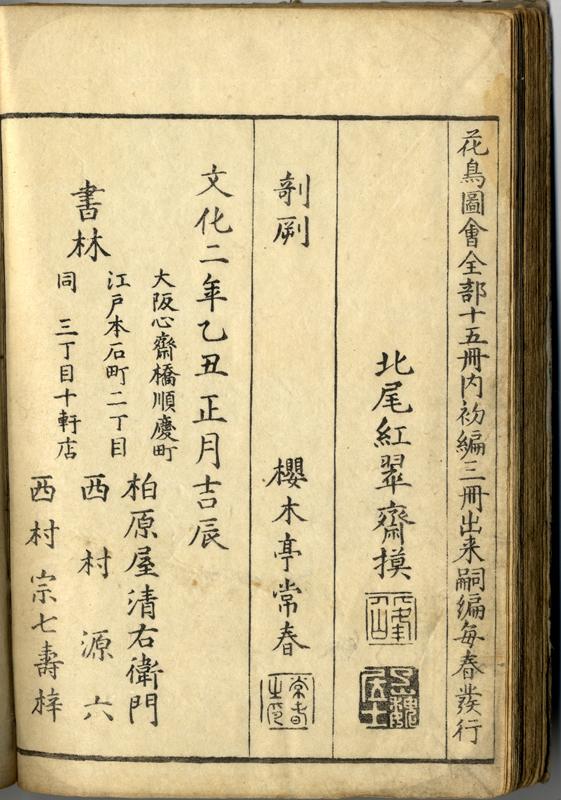 花鳥圖會全部十五冊内初編三冊出来嗣編毎春發行
北尾紅翠齋摸
剞劂 櫻木亭常春
常春之印
文化二年乙丑正月吉辰
書林
大阪心齋橋順慶町 柏原屋清右衛門
江戸本石町二丁目 西村源六
同 三丁目十軒店 西村宗七壽梓